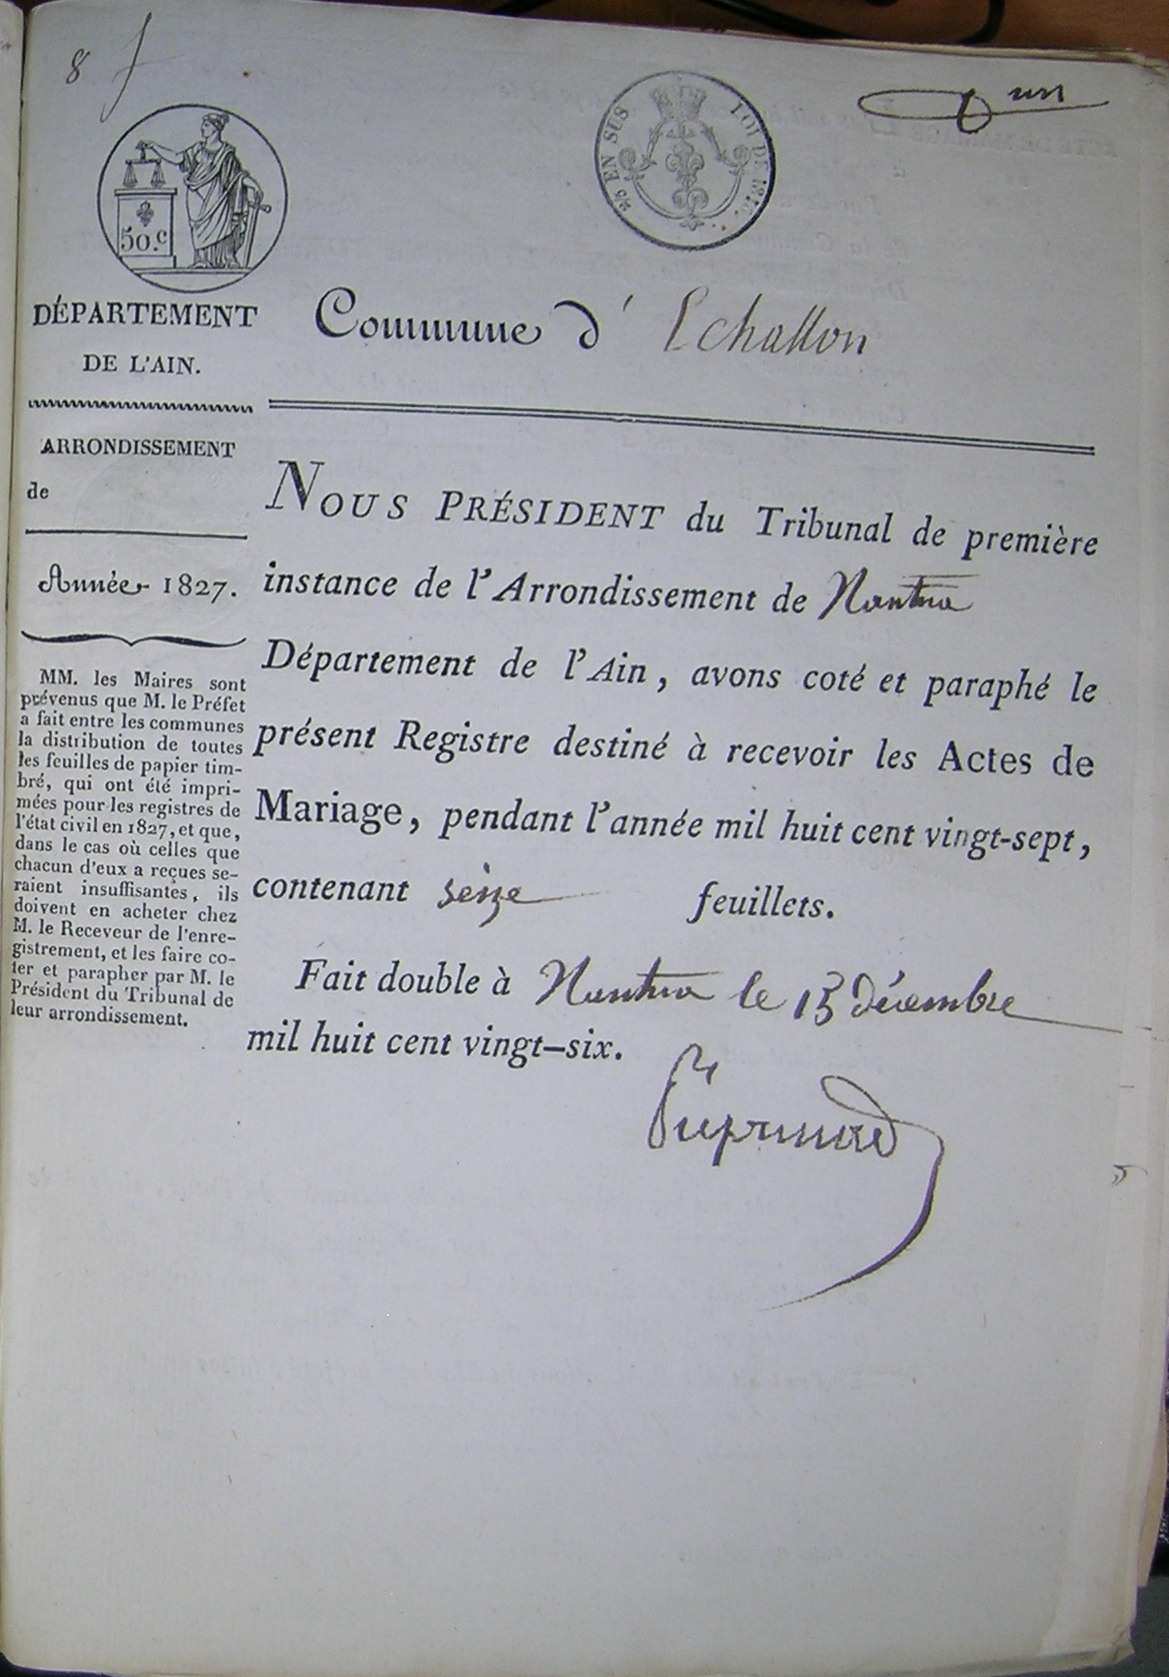 8
un
25 EN SUS LOI DE 1816.
50.c
DÉPARTEMENT
DE L'AIN.
Commune d' Echallon
ARRONDISSEMENT
de
Année 1827.
MM. les Maires sont
prévenus que M. le Préfet
a fait entre les communes
la distribution de toutes
les feuilles de papier tim-
bré, qui ont été impri-
mées pour les registres de
l'état civil en 1827, et que,
dans le cas où celles que
chacun d'eux a reçues se-
raient insuffisantes, ils
doivent en acheter chez
M. le Receveur de l'enre-
gistrement, et les faire co-
ter et parapher par M. le
Président du Tribunal de
leur arrondissement.
NOUS PRÉSIDENT du Tribunal de première
instance de l'Arrondissement de Nantua
Département de l'Ain, avons coté et paraphé le
présent Registre destiné à recevoir les Actes de
Mariage, pendant l'année mil huit cent vingt-sept,
contenant seize feuillets.
Fait double à Nantua le 15 décembre
mil huit cent vingt-six.